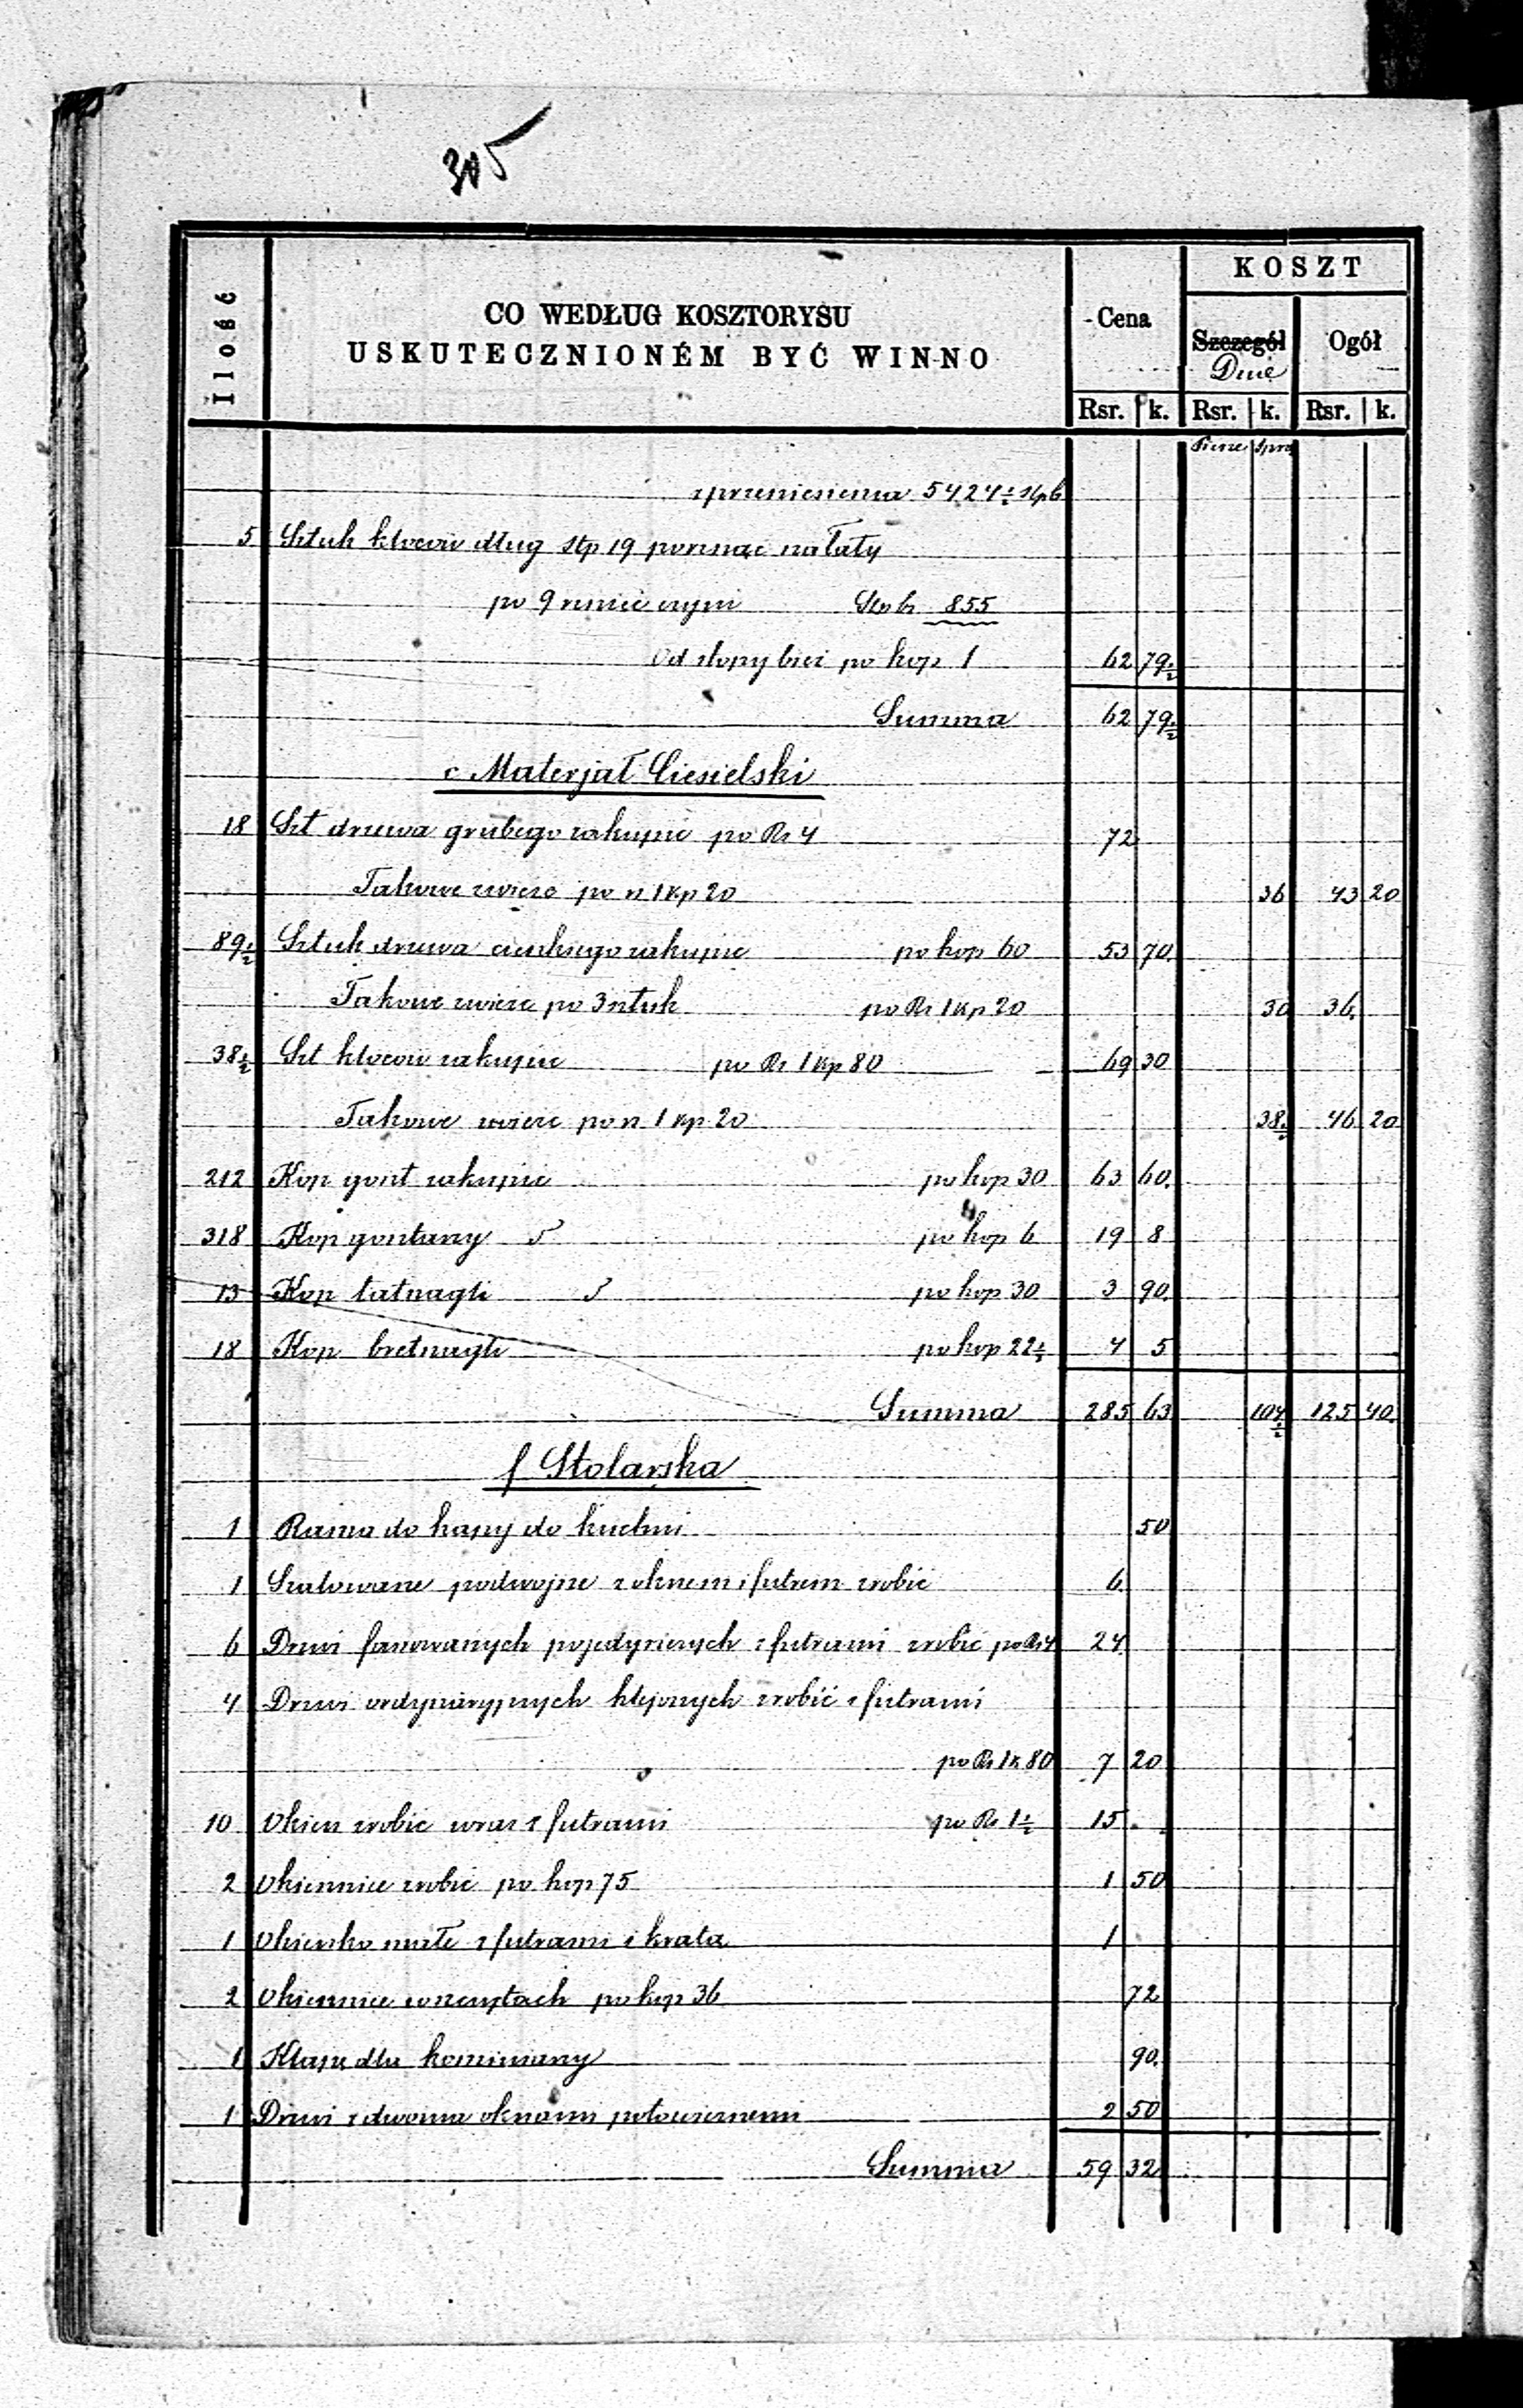 305
Ilość
CO WEDŁUG KOSZTORYSU
USKUTECZNIONÉM BYĆ WINNO
Cena
KOSZT
Szczegół
Dnie
Ogół
Rsr. k. Rsr. k. Rsr. k.
Piesze Sprz
z przeniesienia 5424 1/2 Stp b
5 Sztuk kloców dług Stp 19 porznąć na łaty
po 9 rznięciem Stp b 855
Od stopy bież po kop 1 62 79 1/2
Summa 62 79 1/2
c Materjał Ciesielski
18 Szt drzewa grubego zakupić po Rs 4 72
Takowe zwieźć po rs 1 kp 20 36 43 20
89 1/2 Sztuk drzewa cienkiego zakupić po kop 60 53 70
Takowe zwieźć po 3 sztuk po Rs 1 kp 20 30 36
38 1/2 Szt kloców zakupić po Rs 1 kp 80 69 30
Takowe zwieźć po rs 1 kp 20 38 1/2 46 20
212 Kop gont zakupić po kop 30 63 60
318 Kop gontany 5 po kop 6 19 8
13 Kop łatnagli 5 po kop 30 3 90
18 Kop bretnagli po kop 22 1/2 4 5
Summa 285 63 104 1/2 125 40
f Stolarska
1 Rama do kapy do kuchni 50
1 Szalowane podwójne z oknem i futrem zrobić 6
6 Drzwi fasowanych pojedynczych z futrami zrobić po Rs 4 24
4 Drzwi ordynaryjnych klejonych zrobić z futrami
po Rs 1 k 80 7 20
10 Okien zrobić wraz z futrami po Rs 1 1/2 15
2 Okiennice zrobić po kop 75 1 50
1 Okienko małe z futrami i krata 1
2 Okiennice w szczytach po kop 36 72
1 Klapa dla kominiarzy 90
1 Drzwi z dwoma oknami 2 50
Summa 59 32